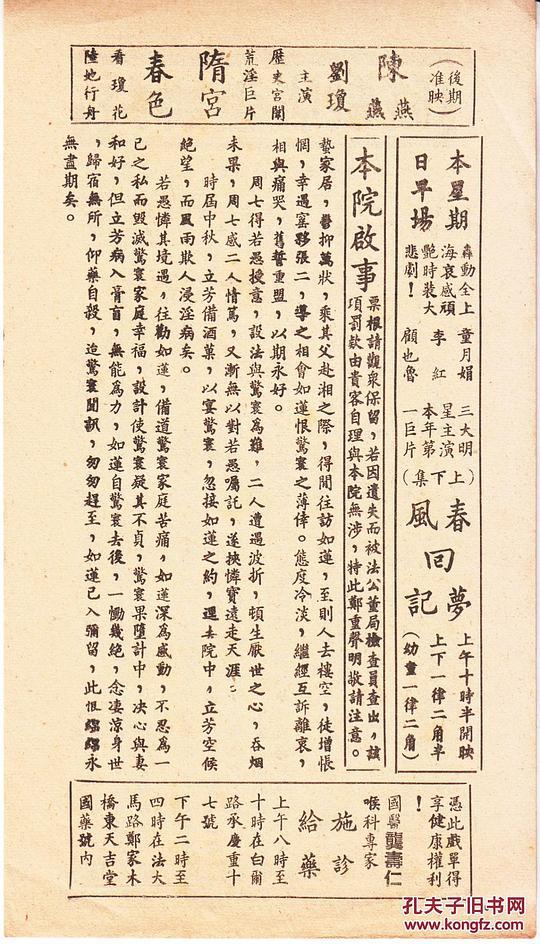 （後期准映）
陳燕燕
劉瓊
主演
歷史宮闈
荒淫巨片
隋宮
春色
看瓊花
陸地行舟
本星期
日早場
轟動全上
海哀感頑
艷時裝大
悲劇！
童月娟
李紅
顧也魯
三大明
星主演
本年第
一巨片
（上下集）
春風回夢記
上午十時半開映
上下一律二角半
（幼童一律二角）
本院啟事
票根請觀衆保留，若因遺失而被法公董局檢查員查出，該
項罰欵由貴客自理與本院無涉，特此鄭重聲明敬請注意。
藝家居，鬱抑萬狀，乘其父赴湘之際，得間往訪如蓮，至則人去樓空，徒增悵
惘，幸遇窰夥張二，導之相會如蓮恨驚寰之薄倖。態度冷淡，繼經互訴離衷，
相與痛哭，舊誓重盟，以期永好。
周七得若愚授意，設法與驚寰為難，二人遭遇波折，頓生厭世之心，吞烟
未果，周七感二人情篤，又漸無以對若愚囑託，遂挾憐寶遠走天涯；
時屆中秋，立芳備酒菓，以宴驚寰，忽接如蓮之約，逕去院中，立芳空候
絕望，而風雨欺人浸淫病矣。
若愚憐其境遇，往勸如蓮，備道驚寰家庭苦痛，如蓮深為感動，不忍為一
己之私而毀滅驚寰家庭幸福，設計使驚寰疑其不貞，驚寰果墮計中，决心與妻
和好，但立芳病入膏肓，無能為力，如蓮自驚寰去後，一慟幾絕，念凄涼身世
，歸宿無所，仰藥自殺，迨驚寰聞訊，匆匆趕至，如蓮已入彌留，此恨綿綿永
無盡期矣。
憑此戲單得
享健康權利
！
國醫龔壽仁
喉科專家
施診
給藥
上午八時至
十時在白爾
路承慶重十
七號
下午二時至
四時在法大
馬路鄭家木
橋東天吉堂
國藥號內
孔夫子旧书网
www.kongfz.com